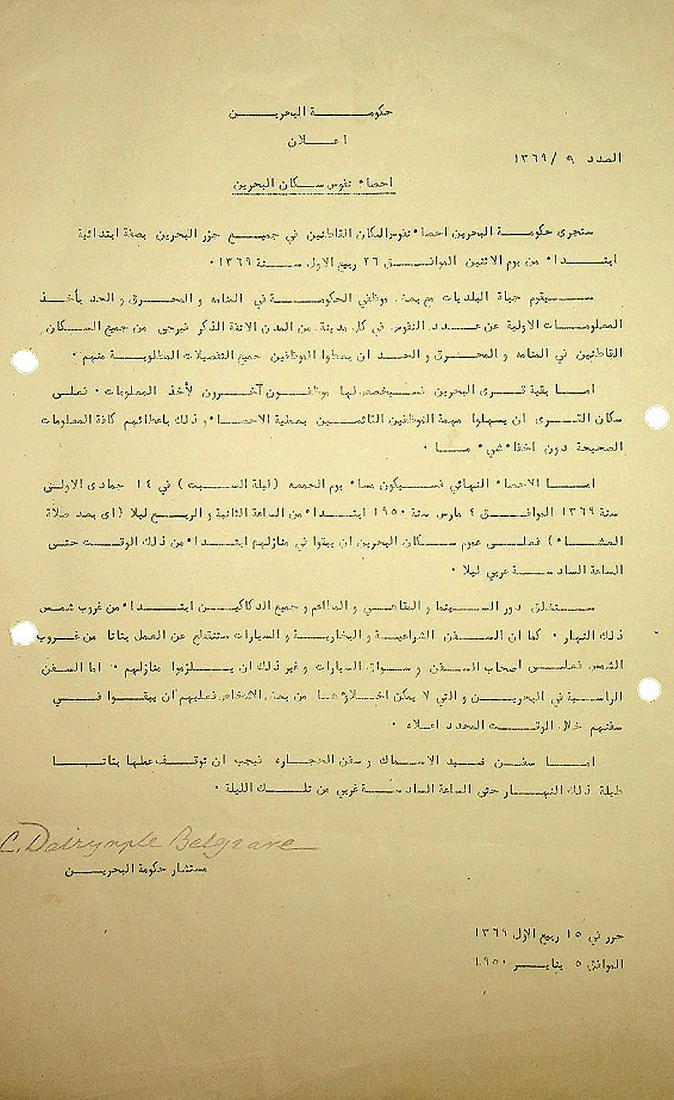 حكومة البحرين
اعلان
العدد ٩ /١٣٦٩
احصاء نفوس سكان البحرين
ستجرى حكومة البحرين احصاء نفوس السكان القاطنين في جميع جزر البحرين بصفة ابتدائية
ابتداء من يوم الاثنين الموافق ٢٦ ربيع الاول سنة ١٣٦٩ ٠
سيقوم جباة البلديات مع بعض موظفي الحكومة في المنامه و المحرق و الحد بأخذ
المعلومات الاولية عن عدد النفوس في كل مدينة من المدن الانفة الذكر فيرجى من جميع السكان
القاطنين في المنامه و المحرق و الحد ان يعطوا الموظفين جميع التفصيلات المطلوبة منهم ٠
اما بقية قرى البحرين فسيخصص لها موظفون آخرون لأخذ المعلومات ٠ فعلى
سكان القرى ان يسهلوا مهمة الموظفين القائمين بعملية الاحصاء و ذلك باعطائهم كافة المعلومات
الصحيحة دون اخفاء شيء ما ٠
اما الاحصاء النهائي فسيكون مساء يوم الجمعه (ليلة السبت) في ١٤ جمادى الاولى
سنة ١٣٦٩ الموافق ٤ مارس سنة ١٩٥٠ ابتداء من الساعة الثانية و الربع ليلا (اى بعد صلاة
العشاء) فعلى عموم سكان البحرين ان يبقوا في منازلهم ابتداء من ذلك الوقت حتى
الساعة السادسة عربي ليلا ٠
ستغلق دور السينما و المقاهي و المطاعم و جميع الدكاكين ابتداء من غروب شمس
ذلك النهار ٠ كما ان السفن الشراعية و البخارية و السيارات ستنقطع عن العمل بتاتا من غروب
الشمس فعلى اصحاب السفن و سواق السيارات و غير ذلك ان يلزموا منازلهم ٠ اما السفن
الراسية في البحرين و التي لا يمكن اخلاؤها من بعض الاشخاص فعليهم ان يبقوا في
سفنهم خلال الوقت المحدد اعلاه ٠
اما سفن صيد الاسماك و سفن الحجاره فيجب ان توقف عملها بتاتا
طيلة ذلك النهار حتى الساعة السادسة عربي من تلك الليلة ٠
C. Dalrymple Belgrave
مستشار حكومة البحرين
حرر في ١٥ ربيع الاول ١٣٦٩
الموافق ٥ يناير ١٩٥٠